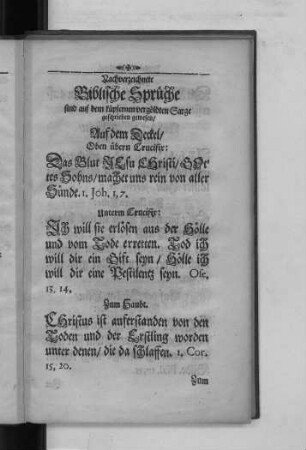 Nachverzeichnete
Biblische Sprüche
sind auf dem küpfernen vergöldten Sarge
geschrieben gewesen/
Auf dem Deckel/
Oben übern Crucifix:
Das Blut JEsu CHristi/ GOt-
tes Sohns/ machet uns rein von aller
Sünde. 1. Joh. 1, 7.
Unterm Crucifix:
Ich will sie erlösen aus der Hölle
und vom Tode erretten. Tod ich
will dir ein Gift seyn/ Hölle ich
will dir eine Pestilentz seyn. Ose.
13. 14.
Zum Haubt.
CHristus ist auferstanden von den
Toden und der Erstling worden
unter denen/ die da schlaffen. 1. Cor.
15, 20.
Zum